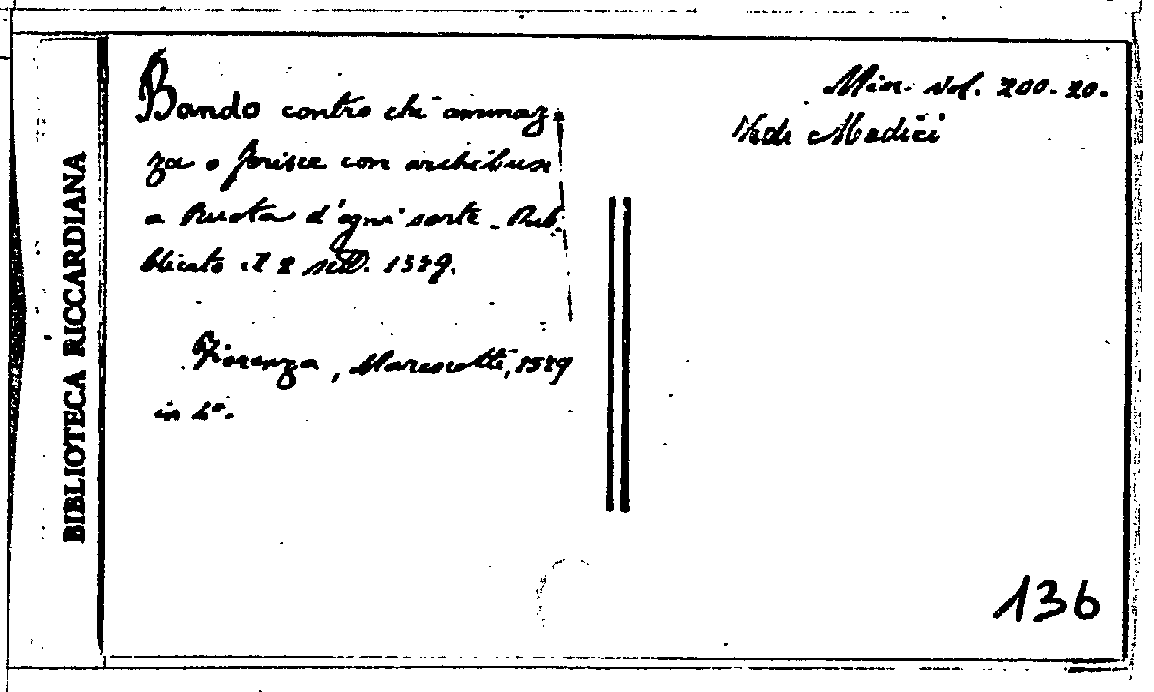 BIBLIOTECA RICCARDIANA
Bando contro chi ammaz-
za o ferisce con archibusi
a Ruota d'ogni sorte. Pub-
blicato il 2 sett. 1589.
Fiorenza, Marescotti, 1589
in 4°.
Misc. vol. 200.20.
Vedi Medici
136